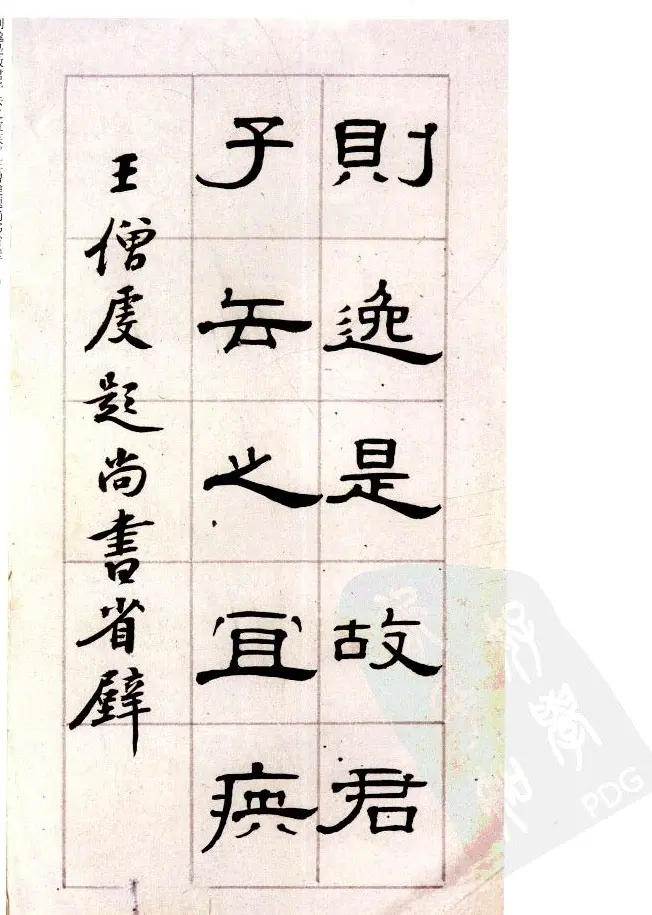 則逸是故君
子去之宜疾
王僧虔題尚書省壁
PDG